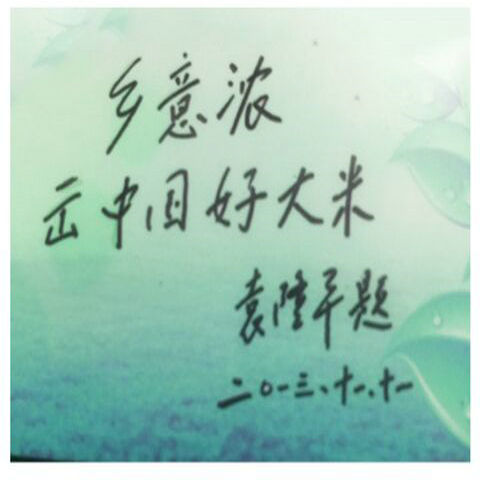 乡意浓
中国好大米
袁隆平题
二〇一三、十一、十一